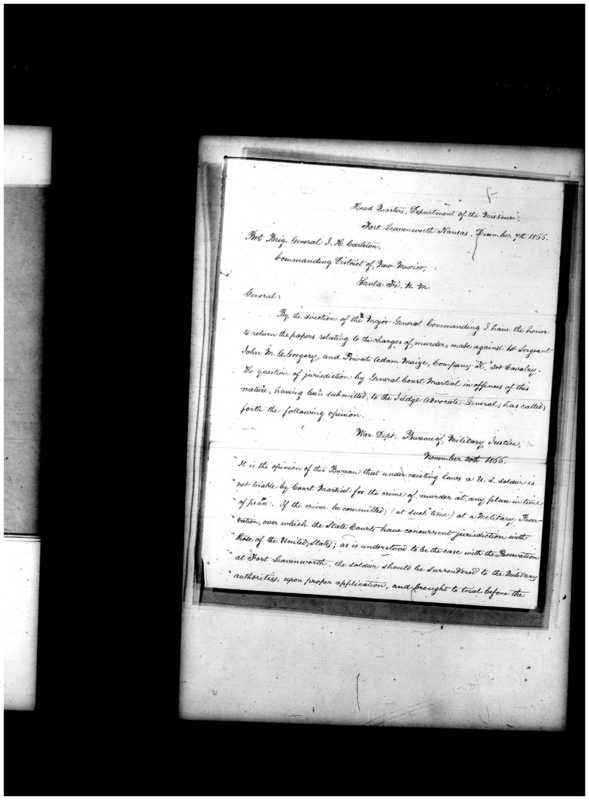 Head Quarters, Department of the Missouri,
Fort Leavenworth Kansas, December 7th 1866.
Bvt Brig. General J. H. Carleton,
Commanding District of New Mexico,
Santa Fé. N. M.
General:
By the direction of the Major General Commanding I have the honor
to return the papers relating to the charges of murder, made against 1st Sergeant
John M. and Private Adam Maize, Company "K", 1st Cavalry.
The question of jurisdiction by General Court Martial in offences of this
nature, having been submitted to the Judge Advocate General, has called
forth the following opinion.
War Dept. Bureau of Military Justice,
November 20th 1866.
"It is the opinion of this Bureau that under existing laws a U. S. soldier is
" not triable by Court Martial for the crime of murder at any place in time
" of peace. If the crime be committed, (at such time) at a Military Reser-
" vation, over which the State Courts have concurrent jurisdiction with
" those of the United States; as is understood to be the case with the Reservation
" at Fort Leavenworth, the soldier should be surrendered to the
" authorities, upon proper application, and brought to trial before the